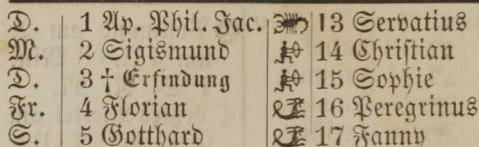 D. 1 Ap. Phil. Jac. 13 Servatius
M. 2 Sigismund 14 Chriſtian
D. 3 † Erfindung 15 Sophie
Fr. 4 Florian 16 Peregrinus
S. 5 Gotthard 17 Fanny